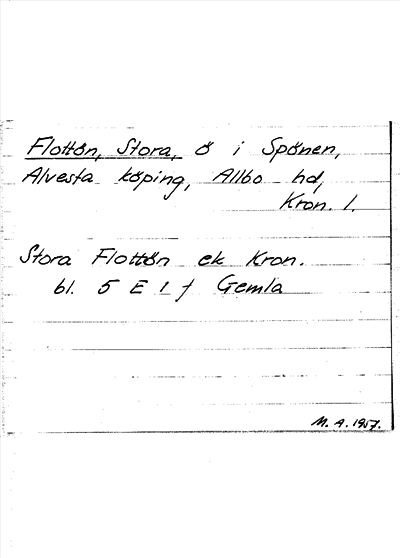 Flottön, Stora, ö i Spånen,
Alvesta köping, Allbo hd,
Kron. l.
Stora Flottön ek Kron.
bl. 5 E 1 f Gemla
M. A. 1957.